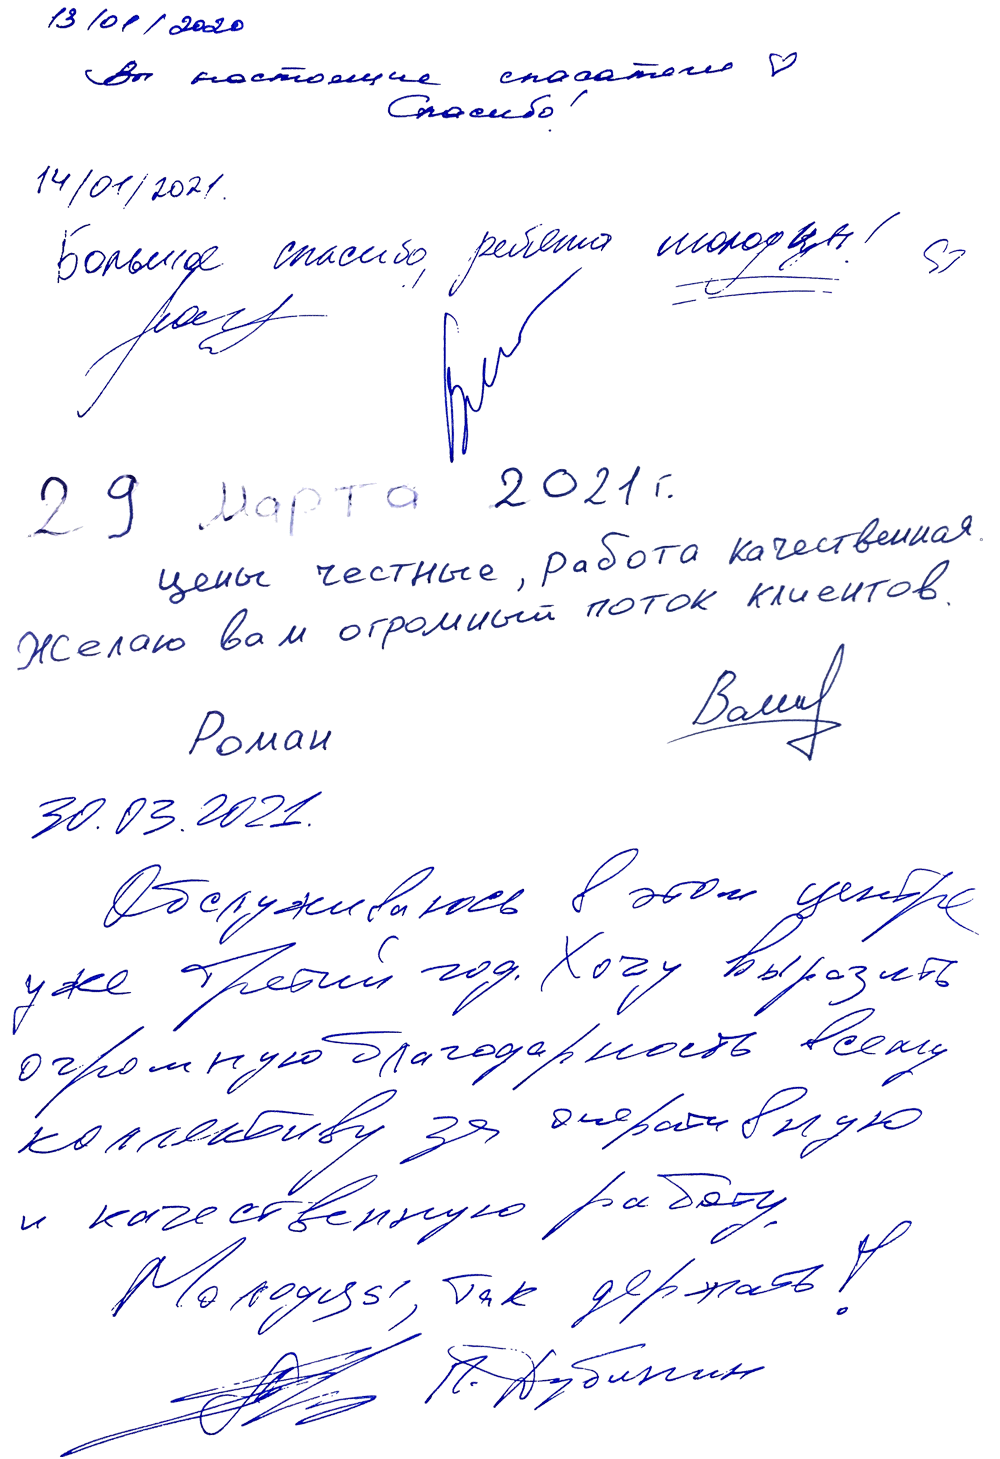 13/01/2020
Вы настоящие спасатели ♡
Спасибо!
14/01/2021.
Большое спасибо, ребята молодцы!
29 марта 2021 г.
Цены честные, работа качественная.
Желаю вам огромный поток клиентов.
Роман
30.03.2021.
Обслуживаюсь в этом центре
уже третий год. Хочу выразить
огромную благодарность всему
коллективу за оперативную
и качественную работу.
Молодцы, так держать!
П. Дубинин